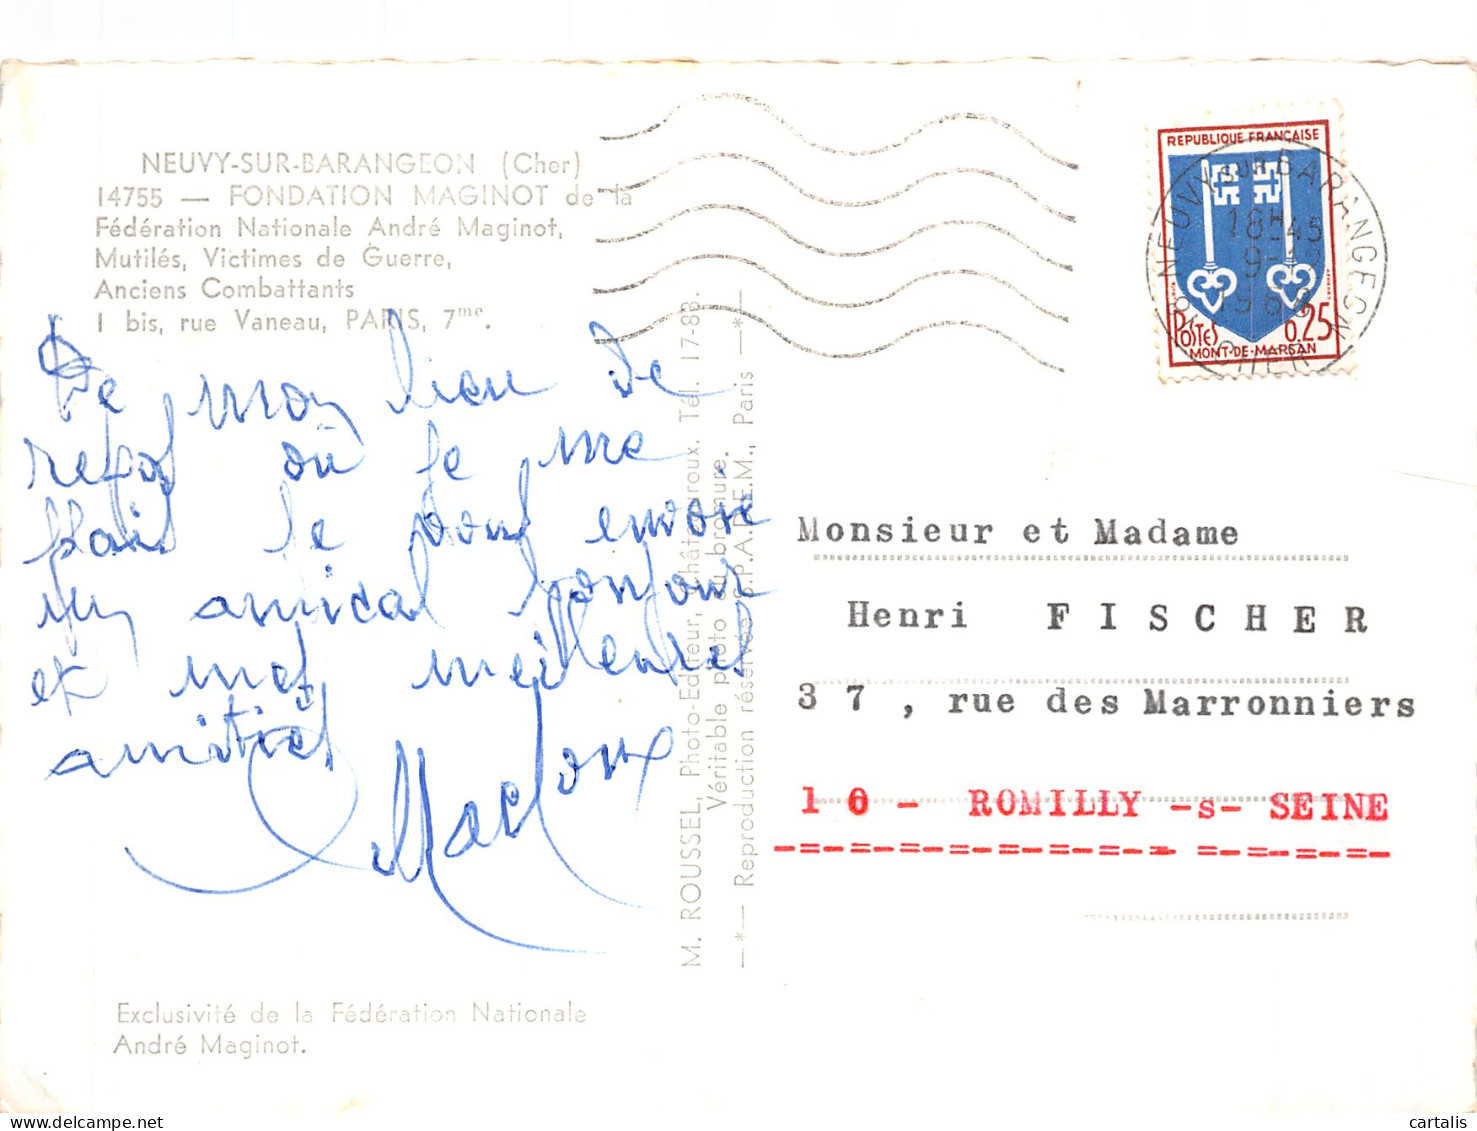 NEUVY-SUR-BARANGEON (Cher)
14755 — FONDATION MAGINOT de la
Fédération Nationale André Maginot,
Mutilés, Victimes de Guerre,
Anciens Combattants
1 bis, rue Vaneau, PARIS, 7me.
De mon lieu de
repos où je me
plais je vous envoie
un amical bonjour
et mes meilleures
amitiés
Exclusivité de la Fédération Nationale
André Maginot.
M. ROUSSEL, Photo-Editeur, Châteauroux. Tél. 17-88.
Véritable photo au bromure.
—*— Reproduction réservée S.P.A.D.E.M., Paris —*—
REPUBLIQUE FRANÇAISE
POSTES 0,25
MONT-DE-MARSAN
NEUVY SUR BARANGEON
18H45
CHER
Monsieur et Madame
Henri FISCHER
37, rue des Marronniers
10 - ROMILLY -s- SEINE
cartalis